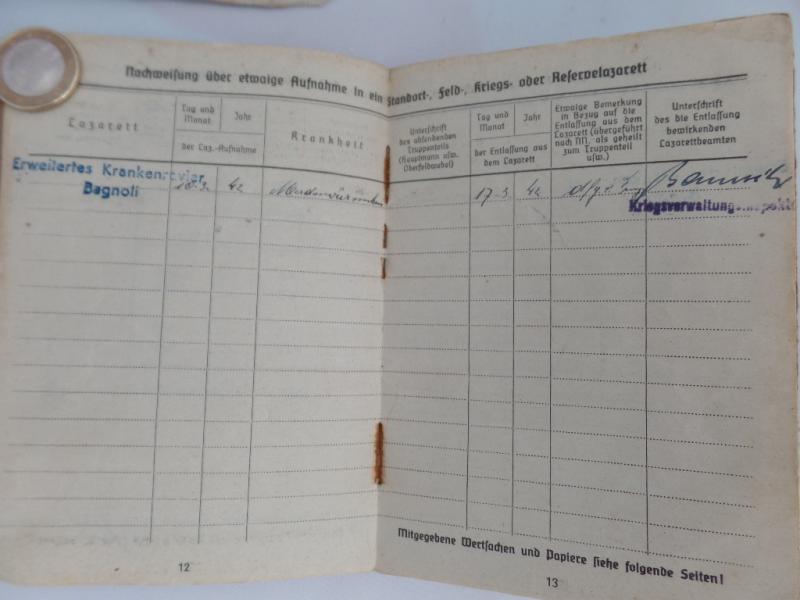 Nachweisung über etwaige Aufnahme in ein Standort-, Feld-, Kriegs- oder Reservelazarett
Lazarett
Tag und
Monat
Jahr
der Laz.-Aufnahme
Krankheit
Unterschrift
des absendenden
Truppenteils
(Hauptmann usw.
Oberfeldwebel)
Tag und
Monat
Jahr
der Entlassung aus
dem Lazarett
Etwaige Bemerkung
in Bezug auf die
Entlassung aus dem
Lazarett (übergeführt
nach NN, als geheilt
zum Truppenteil
usw.)
Unterschrift
des die Entlassung
bewirkenden
Lazarettbeamten
Erweitertes Krankenrevier
Bagnoli
42
17.3.
42
Mitgegebene Wertsachen und Papiere siehe folgende Seiten!
12
13